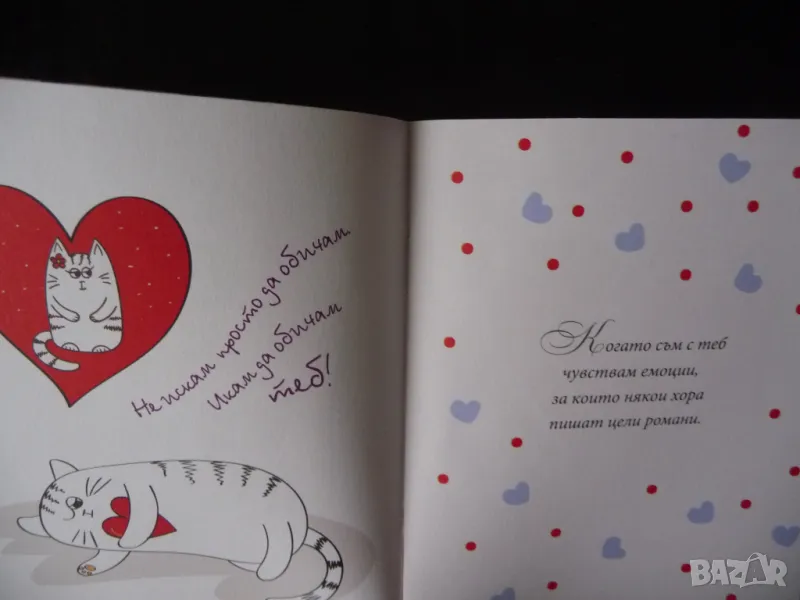 Не искам просто да обичам.
Икам да обичам
теб!
Когато съм с теб
чувствам емоции,
за които някои хора
пишат цели романи.
BAZAR